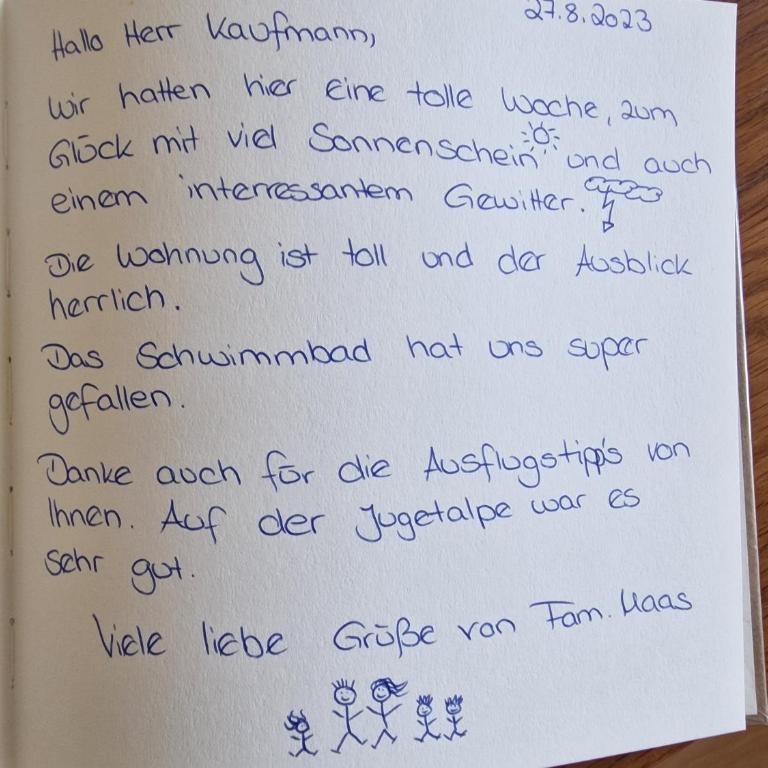 27.8.2023
Hallo Herr Kaufmann,
Wir hatten hier eine tolle Woche, zum
Glück mit viel Sonnenschein und auch
einem interressantem Gewitter.
Die Wohnung ist toll und der Ausblick
herrlich.
Das Schwimmbad hat uns super
gefallen.
Danke auch für die Ausflugstipp's von
Ihnen. Auf der Jugetalpe war es
sehr gut.
Viele liebe Grüße von Fam. Haas